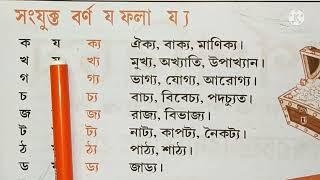 সংযুক্ত বর্ণ য ফলা য ্য
ক য ক্য ঐক্য, বাক্য, মাণিক্য।
খ য খ্য মুখ্য, অখ্যাতি, উপাখ্যান।
গ গ্য ভাগ্য, যোগ্য, আরোগ্য।
চ চ্য বাচ্য, বিবেচ্য, পদচ্যুত।
জ জ্য রাজ্য, বিভাজ্য।
ট ট্য নাট্য, কাপট্য, নৈকট্য।
ঠ ঠ্য পাঠ্য, শাঠ্য।
ড ড্য জাড্য।